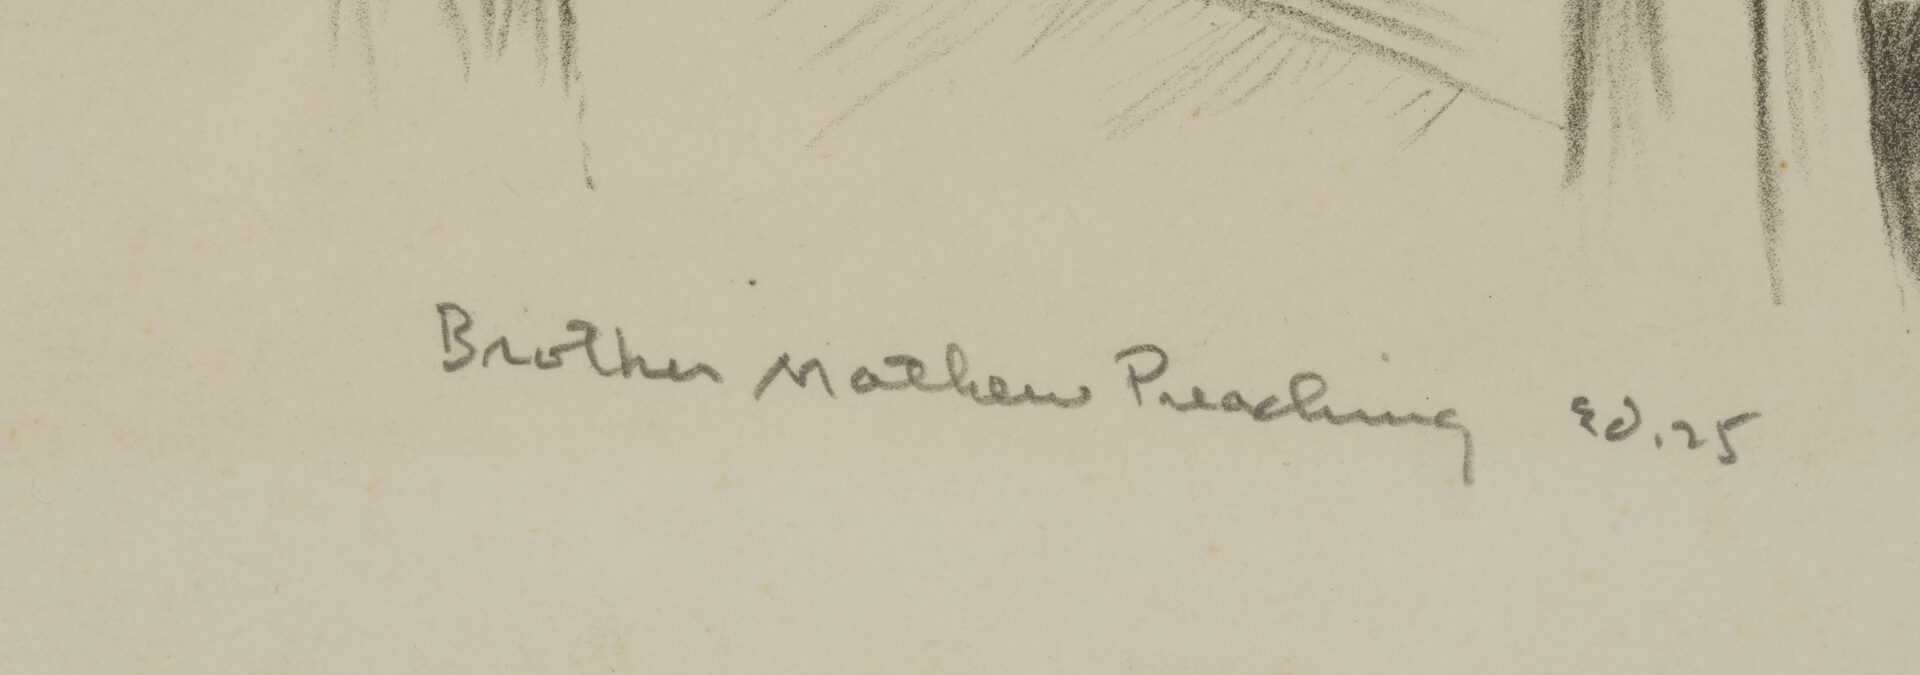 Brother Mathew Preaching Ed. 25